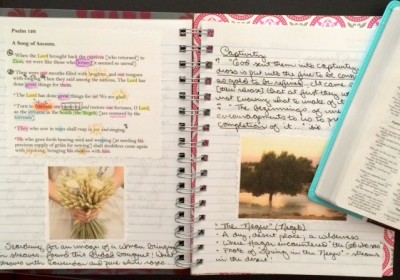 Psalm 126
A Song of Ascents.
When the Lord brought back the captives [who returned] to
Zion, we were like those who dream [it seemed so unreal].
Then were our mouths filled with laughter, and our tongues
with singing. Then they said among the nations, The Lord has
done great things for them.
The Lord has done great things for us! We are glad!
Turn to freedom our captivity and restore our fortunes, O Lord,
as the streams in the South (the Negeb) [are restored by the
torrents].
They who sow in tears shall reap in joy and singing.
He who goes forth bearing seed and weeping [at needing his
precious supply of grain for sowing] shall doubtless come again
with rejoicing, bringing his sheaves with him.
Searching for an image of a woman bringing
in sheaves, found this bridal bouquet! What
sheaves with lavender and pure white roses
Captivity
"God sent them into captivity
dross is put into the fire to be
as gold to be refined. It came
that at first they
what to make of it
"The beginnings of
encouragements to us to
completion of it..."
"The "Negev" (Negeb)
- A dry, desert place, a wilderness
- Where Hagar encountered the God who sees
- Photo of Spring in the "Negev" - streams
in the desert!